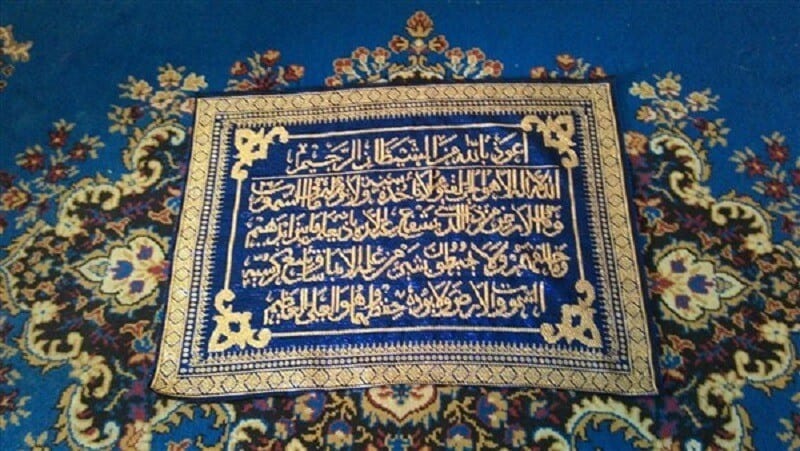 اعوذ بالله من الشيطان الرجيم
الله لا اله الا هو الحي القيوم لا تأخذه سنة ولا نوم له ما في السموات
وما في الارض من ذا الذي يشفع عنده الا باذنه يعلم ما بين ايديهم
وما خلفهم ولا يحيطون بشيء من علمه الا بما شاء وسع كرسيه
السموات والارض ولا يؤده حفظهما وهو العلي العظيم